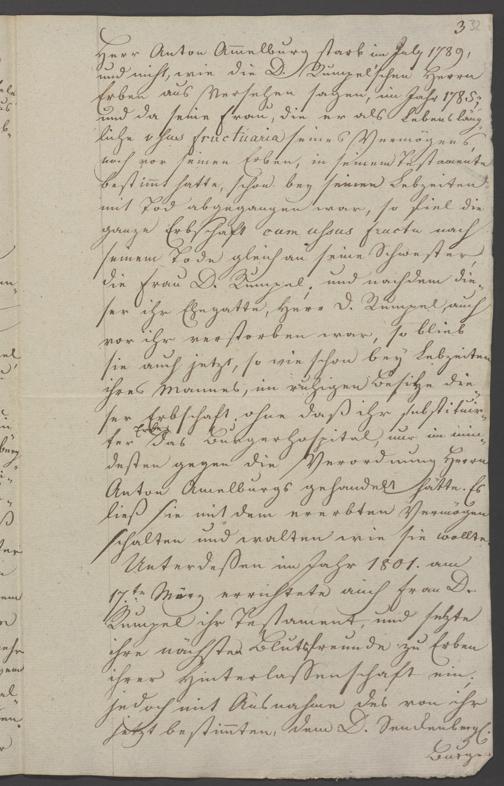 3 32
Herr Anton Amelburg starb im July 1789,
und nicht, wie die D. Rumpel'schen Herrn
Erben aus Versehen sagen, im Jahr 1785,
und da seine Frau, die er als Lebensläng-
liche usus fructuaria seines Vermögens,
noch vor seinen Erben, in seinem Testamente
bestimmt hatte, schon bey seinen Lebzeiten
mit Tod abgegangen war, so fiel die
ganze Erbschaft cum usus fructu nach
seinem Tode gleich an seine Schwester,
die Frau D. Rumpel, und nachdem die-
ser ihr Ehegatte, Herr D. Rumpel, auch
vor ihr verstorben war, so blieb
sie auch jetzt, so wie schon bey Lebzeiten
ihres Mannes, im ruhigen Besitze die-
ser Erbschaft, ohne daß ihr substituir-
ter Erbe das Bürgerhospital, nur im min-
desten gegen die Verordnung Herrn
Anton Amelburgs gehandelt hätte. Es
ließ sie mit dem ererbten Vermögen
schalten und walten wie sie wollte.
Unterdessen im Jahr 1801. am
17.ten März errichtete auch Frau D.
Rumpel ihr Testament, und setzte
ihre nächste Blutsfreunde zu Erben
ihrer Hinterlassenschaft ein,
jedoch mit Ausnahme des von ihr
jetzt bestimmten, dem D. Senckenberg.
Bürger